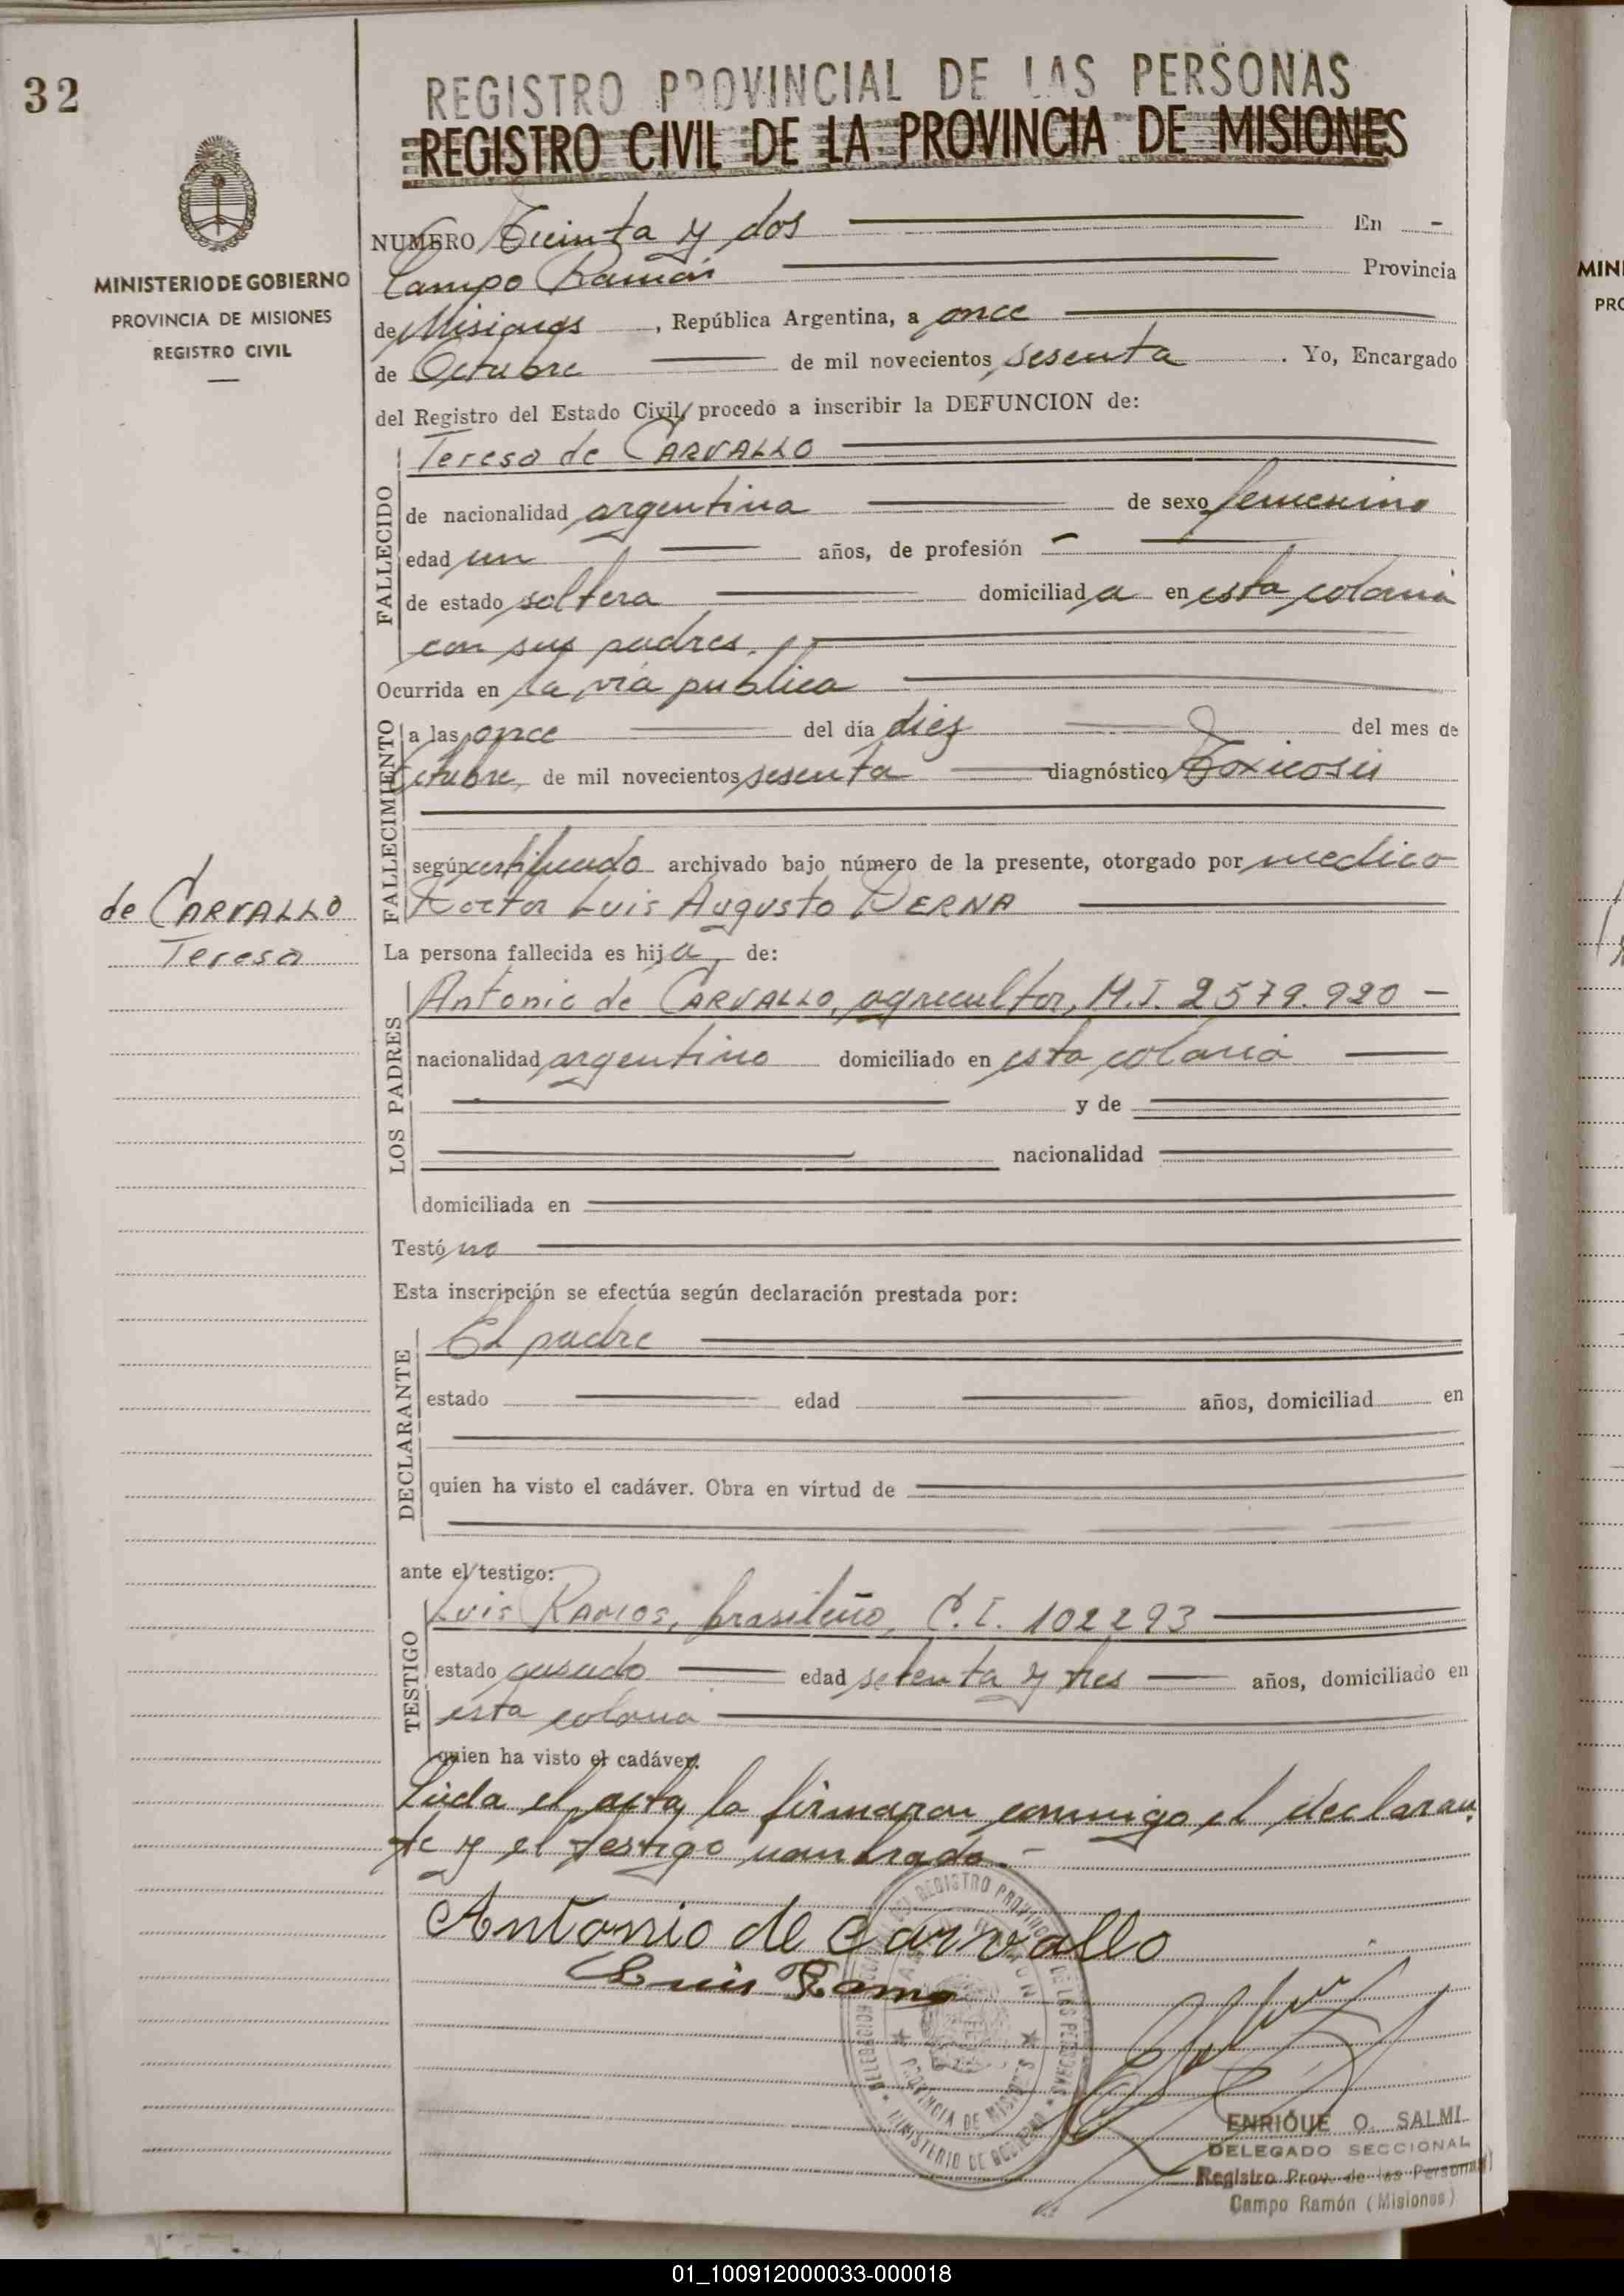 32
REGISTRO PROVINCIAL DE LAS PERSONAS
REGISTRO CIVIL DE LA PROVINCIA DE MISIONES
MINISTERIO DE GOBIERNO
PROVINCIA DE MISIONES
REGISTRO CIVIL
NUMERO Treinta y dos En -
Campo Ramón Provincia
de Misiones, República Argentina, a once
de Octubre de mil novecientos sesenta. Yo, Encargado
del Registro del Estado Civil, procedo a inscribir la DEFUNCION de:
FALLECIDO
Teresa de CARVALLO
de nacionalidad argentina de sexo femenino
edad un años, de profesión -
de estado soltera domiciliada en esta colonia
con sus padres.
Ocurrida en la via publica
FALLECIMIENTO
a las once del día diez del mes de
Octubre, de mil novecientos sesenta diagnóstico Toxicosis
según certificado archivado bajo número de la presente, otorgado por medico
Doctor Luis Augusto DERNA
de CARVALLO
Teresa
La persona fallecida es hija, de:
LOS PADRES
Antonio de CARVALLO, agricultor, M.I. 2579.920 -
nacionalidad argentino domiciliado en esta colonia
y de
nacionalidad
domiciliada en
Testó no
Esta inscripción se efectúa según declaración prestada por:
DECLARANTE
El padre
estado edad años, domiciliad en
quien ha visto el cadáver. Obra en virtud de
ante el testigo:
TESTIGO
Luis RAMOS, brasileño, C.I. 102293
estado casado edad setenta y tres años, domiciliado en
esta colonia
quien ha visto el cadáver.
Leida el acta, la firmaron conmigo el declaran-
te y el testigo nombrado.-
Antonio de Carvallo
Luis Ramo
REGISTRO PROVINCIAL DE LAS PERSONAS
PROVINCIA DE MISIONES
MINISTERIO DE GOBIERNO
ENRIQUE O. SALMI
DELEGADO SECCIONAL
Registro Prov. de las Personas
Campo Ramón (Misiones)
MIN
PRO
01_100912000033-000018